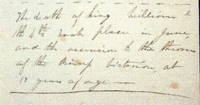 The death of King William
the 4th took place in June,
and the accession to the throne
of the Victoria, at
18 years of age —